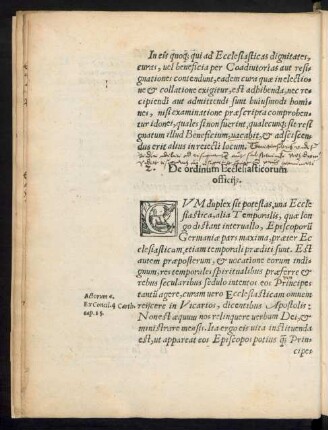 In eis quoq; qui ad Ecclesiasticas dignitates,
curas, uel beneficia per Coadiutorias aut resi
gnationes contendunt, eadem cura quæ in electio
ne & collatione exigitur, est adhibenda, nec re
cipiendi aut admittendi sunt huiusmodi homi
nes, nisi examinatione præscripta comprobēn
tur idonei, quales si non fuerint, qualecunq; sit resi
gnatum illud Beneficium, uacabit, & adsciscen
dus erit alius in reiecti locum.
2. De ordinum Ecclesiasticorum
officijs.
CVM duplex sit potestas, una Eccle
siastica, alia Temporalis, quæ lon
go distant interuallo, Episcoporū
Germaniæ pars maxima, præter Ec
clesiasticam, etiam temporali præditi sunt. Est
autem præposterum, & uocatione eorum indi
gnum, res temporales spiritualibus præferre &
rebus secularibus sedulo intentos eos Principes
tantū agere, curam uero Ecclesiasticam omnem
Actorum 6. reijcere in Vicarios, dicentibus Apostolis:
Ex Concil. 4 Carth.
cap. 15. Non est æquum nos relinquere uerbum Dei, &
ministrare mensis. Ita ergo eis uita instituenda
est, ut appareat eos Episcopos potius q̃ Prin-
cipes